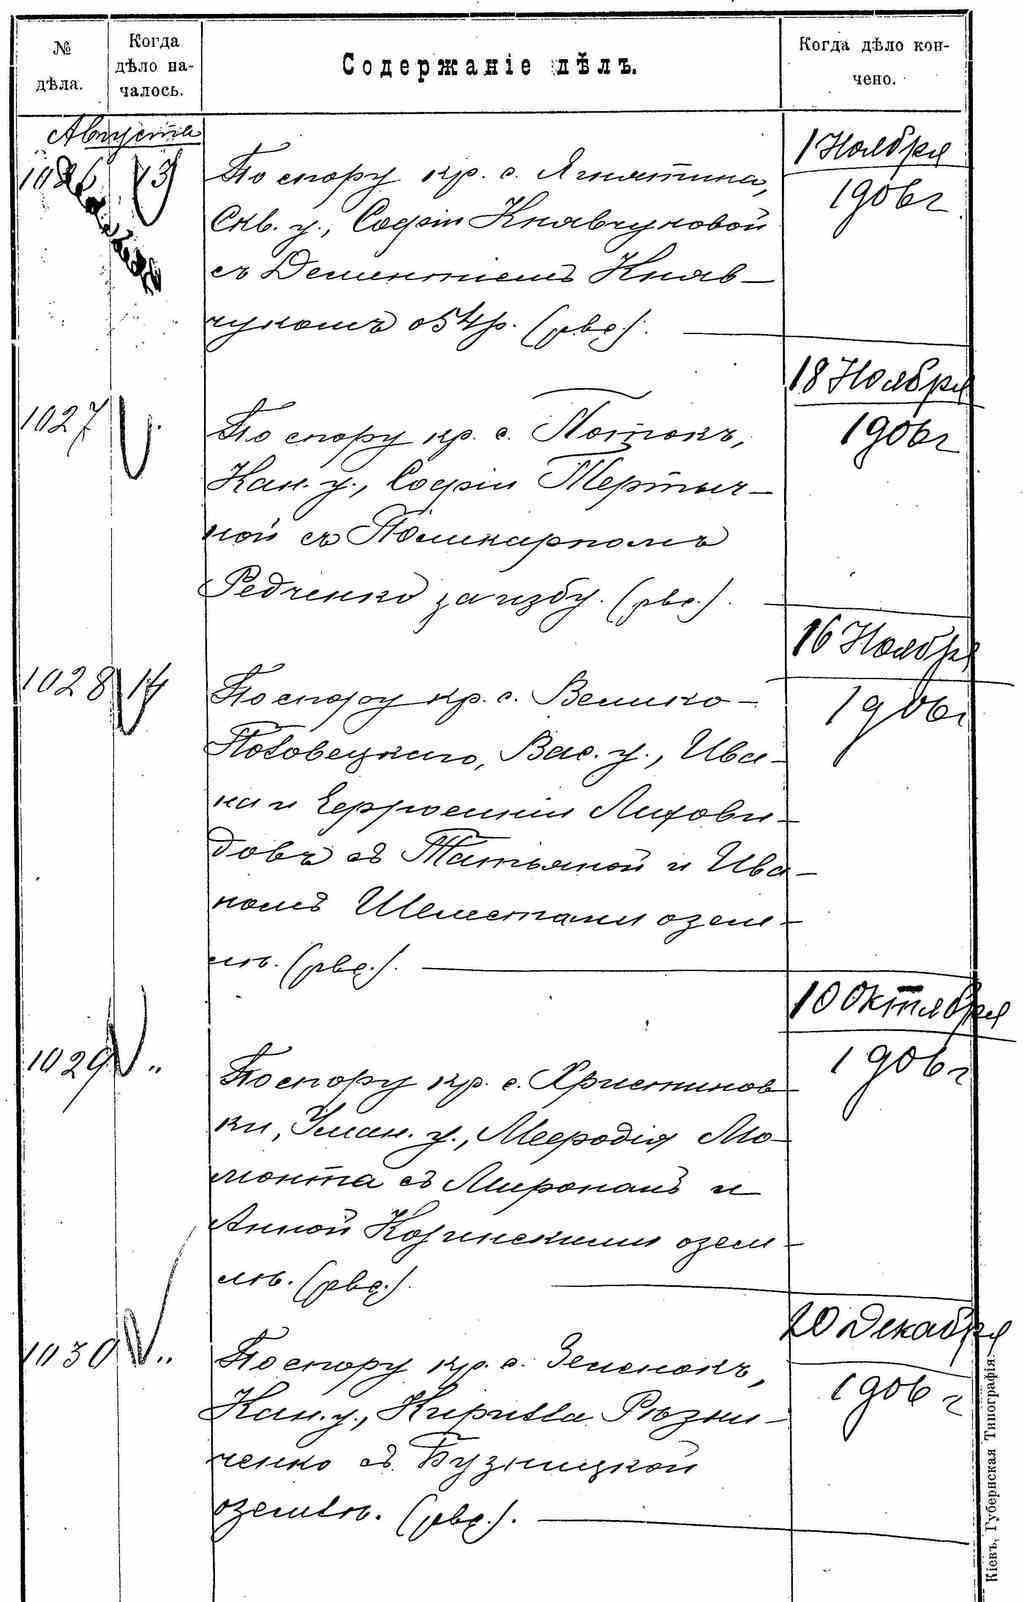 №
дѣла.
Когда
дѣло на-
чалось.
Содержаніе дѣлъ.
Когда дѣло кон-
чено.
Августа
1026 13
По спору кр. с. Ягнятина,
Скв. у., Софіи Княвчуковой
съ Дементіемъ Княв-
чукомъ о 54 р.
1 Ноября
1906 г
1027
По спору кр. с. Потокъ,
Кан. у., Софіи Тертыч-
ной съ Поликарпомъ
Редченко за избу.
18 Ноября
1906 г
1028 14
По спору кр. с. Велико-
Половецкаго, Вас. у., Ива-
на и Евфросиніи Лихови-
довъ съ Татьяной и Ива-
номъ Шелестами о зем-
лѣ.
16 Ноября
1906 г
1029 „
По спору кр. с. Христинов-
ки, Уман. у., Мефодія Мо-
монта съ Мирономъ и
Анной Козинскими о зем-
лѣ.
10 Октября
1906 г
1030 „
По спору кр. с. Зеленокъ,
Кан. у., Кирилла Рѣзни-
ченко съ Бузницкой
о землѣ.
20 Декабря
1906 г
Кіевъ, Губернская Типографія.